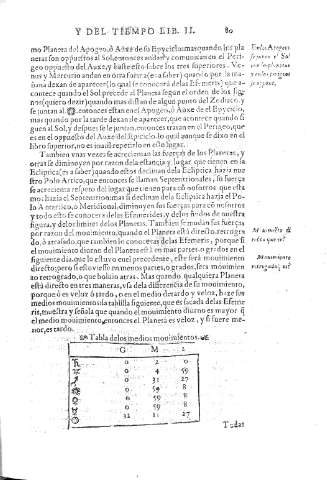 Y DEL TIEMPO LIB. II. 80
mo Planeta del Apogeo, ò Auxe de su Epyciclo: mas quando los pla
netas son oppositos al Sol, entonces andan y comunican en el Peri-
geo opposito del Auxe, y baste esto sobre los tres superiores. Ve-
nus y Mercurio andan en otra fuerza (es a saber) quando por la ma-
ñana dexan de aparecer (lo qual se conocerà de las Efemeris) que a-
contece quando el Sol precede al Planeta segun el orden de los sig-
nos (quiero dezir) quando mas distan de algun punto del Zodiaco, y
se juntan al entonces estan en el Apogeo, ò Auxe de el Epyciclo,
mas quando por la tarde dexan de aparecer, que acontece quando si
guen al Sol, y despues se le juntan, entonces estan en el Perigeo, que
es en el opposito del Auxe del Epiciclo, lo qual aunque se dixo en el
libro superior, no es inutil repetirlo en este lugar.
Tambien unas vezes se acrecientan las fuerças de los Planetas, y
otras se disminuyen por razon de la estancia y lugar que tienen en la
Ecliptica (es a saber) quando estos declinan de la Ecliptica hazia nue
stro Polo Artico, que entonces se llaman Septentrionales, su fuerça
se acrecienta respeto del lugar que tienen para cõ nosotros que esta
mos hazia el Septentrion: mas si declinan de la Ecliptica hazia el Po-
lo Antartico, ò Meridional, diminuyen sus fuerças para cõ nosotros
y todo esto se conocerà de las Efemerides, y de los ñudos de nuestra
figura, y de los limites de los Planetas. Tambiẽ se mudan sus fuerças
por razon del movimiento, quando el Planeta està directo, retrogra
do, ò atrasado, que tambien lo conoceràs de las Efemeris; porque si
el movimiento diurno del Planeta està en mas partes o grados en el
siguiente dia, que lo estuvo en el precedente, este serà movimiento
directo: pero si estuviesse en menos partes, o grados, serà movimien
to retrogrado, o que buelve atras. Mas quando qualquiera Planeta
està directo en tres maneras, usa de la diferencia de su movimiento,
porque ò es veloz ò tardo, o en el medio de tardo y veloz, haze sus
medios movimientos la tablilla siguiente, que es sacada de las Efeme
ris, muestra y señala que quando el movimiento diurno es mayor q̃
el medio movimiento, entonces el Planeta es veloz, y si fuere me-
nor, es tardo.
Tabla de los medios movimientos.
G M 2
♄ 0 2 0
♃ 0 4 59
♂ 0 31 27
☉ 0 59 8
♀ 0 59 8
☿ 0 59 8
☽ 13 11 27
Todas